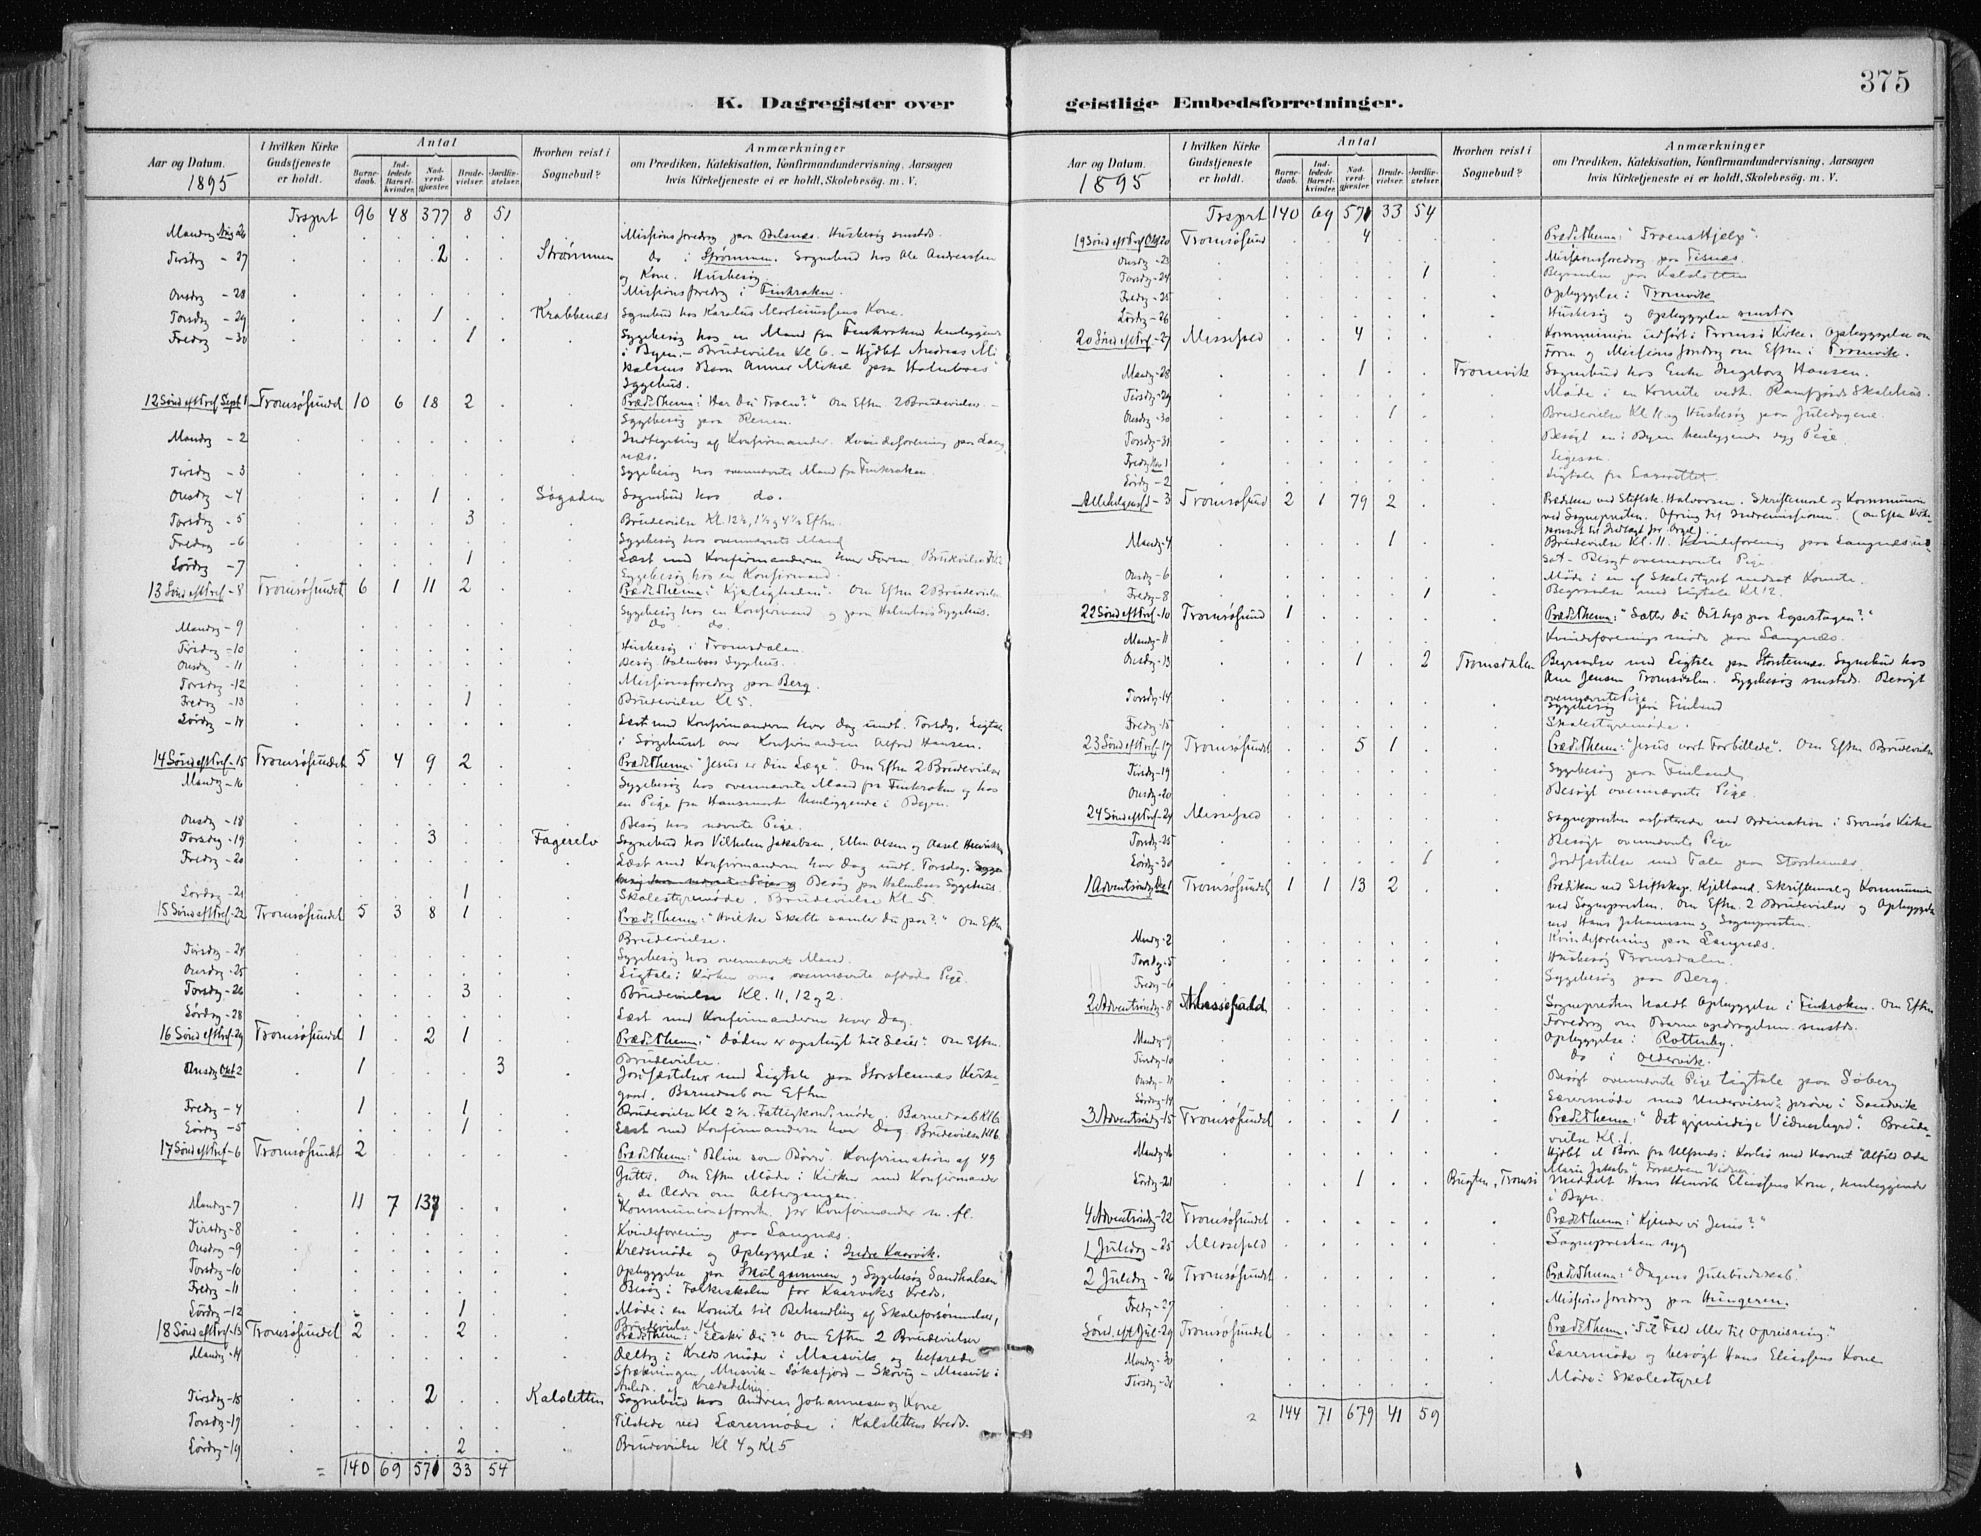 375
K. Dagregister over
geistlige Embedsforretninger.
Aar og Datum.
1895
I hvilken Kirke Gudstjeneste er holdt.
Antal
Barnedaab.
Indledede Barselkvinder.
Nadverdgjæster.
Brudevielser.
Jordfæstelser.
Hvorhen reist i Sognebud?
Anmærkninger
om Prædiken, Katekisation, Konfirmandundervisning, Aarsagen
hvis Kirketjeneste ei er holdt, Skolebesøg. m. V.
Trsprt 96 48 377 8 51
Mandag Aug 26 Missionsforedrag paa Balsnes. Husbesøg smstds.
Tirsdag - 27 2 Strømmen do i Strømmen. Sognebud hos Ole Andreassen
og Kone. Husbesøg
Onsdag - 28 Missionsforedrag i Finkroken.
Torsdag - 29 1 Krabbenes Sognebud hos Karolus Mortinussens Kone.
Fredag - 30 1 Sygebesøg hos en Mand fra Finkroken henliggende
i Byen. - Brudevielse Kl 6. - Hjdbt Andreas Mi
kalsens Barn Anna Mikal paa Holmboes
Sygehus.
12 Sønd eft Tref Sept 1 Tromsøsundet 10 6 18 2 Præd. Thema: "Har Du Troen?" Om Eftm. 2 Brudevielser. -
Sygebesøg paa Renen.
Mandag - 2 Indtegning af Konfirmander. Kvindeforening paa Lang
næs.
Tirsdag - 3 Sygebesøg hos ovennævnte Mand fra Finkroken.
Onsdag - 4 1 Søgaden Sognebud hos do.
Torsdag - 5 3 Brudevielse Kl. 12½, 1½ og 4½ Eftm.
Fredag - 6 Sygebesøg hos ovennævnte Mand
Lördag - 7 1 Læst med Konfirmanderne hver Formm. Brudevielse Kl 2
Sygebesøg hos en Konfirmand.
13 Sønd eft Tref - 8 Tromsøsundet 6 1 11 2 Præd. Thema: "Kjærligheden". Om Eftm 2 Brudevielser.
Sygebesøg hos en Konfirmand og paa Holmboes Sygehus.
Mandag - 9 do do.
Tirsdag - 10 Husbesøg i Tromsdalen.
Onsdag - 11 Besøg Holmboes Sygehus.
Torsdag - 12 Missionsforedrag paa Berg.
Fredag - 13 1 Brudevielse Kl 5.
Lördag - 14 Læst med Konfirmanderne hver Dag undt. Torsdag. Ligtale
i Sørgehuset over Konfirmanden Alfred Hansen.
14 Sønd eft Tref - 15 Tromsøsundet 5 4 9 2 Præd. Thema: "Jesus er din Læge". Om Eftm 2 Brudevielser
Mandag - 16 Sygebesøg hos ovennævnte Mand fra Finkroken og hos
en Pige fra Hansmark henliggende i Byen.
Onsdag - 18 Besøg hos nævnte Pige.
Torsdag - 19 3 Fagerelv Sognebud hos Vilhelm Jakobsen, Ellen Olsen og Aasel Henriksen
Fredag - 20 Læst med Konfirmanderne hver Dag undt. Torsdag.
Besøg paa Holmboes Sygehus.
Lördag - 21 1 Skolestyremøde. Brudevielse Kl. 5.
15 Sønd eft Tref - 22 Tromsøsundet 5 3 8 1 Præd. Thema: "Hvilke Skatte samler du paa?" Om Eftm
Brudevielse.
Tirsdag - 24 Sygebesøg hos ovennævnte Mand.
Onsdag - 25 Ligtale i Kirken over ovennævnte afdøde Pige.
Torsdag - 26 3 Brudevielse Kl. 11, 12 og 2.
Lördag - 28 Læst med Konfirmanderne hver Dag.
16 Sønd eft Tref - 29 Tromsøsundet 1 2 1 Præd. Thema: "Døden er opslugt til Seier". Om Eftm.
Brudevielse.
Onsdag Okt 2 1 3 Jordfæstelser med Ligtale paa Storstennæs Kirke-
gaard. Barnedaab om Eftm
Fredag - 4 1 1 Brudevielse Kl 2½. Fattigkom. møde. Barnedaab Kl 6.
Lördag - 5 1 Læst med Konfirmanderne hver Dag. Brudevielse Kl 6.
17 Sønd eft Tref - 6 Tromsøsundet 2 Præd. Thema: "Blive som Børn". Konfirmation af 49
Gutter. Om Eftm Møde i Kirken med Konfirmander
og de Ældre om Altergangen.
Mandag - 7 11 7 137 Kommunionsforrtn. for Konfirmander m. fl.
Tirsdag - 8 Kvindeforening paa Langnæs.
Onsdag - 9 Kredsmøde og Opbyggelse i Indre Kaarvik.
Torsdag - 10 Opbyggelse paa Skulgammen og Sygebesøg Sandhalsen
Fredag - 11 Besøg i Folkeskolen for Kaarviks Kreds.
Lördag - 12 1 Møde i en Komite til Behandling af Skoleforsømmelser,
Brudevielse Kl
18 Sønd eft Tref - 13 Tromsøsundet 2 2 Præd. Thema: "Elsker Du?" Om Eftm 2 Brudevielser
Mandag - 14 Deltog i Kreds møde i Maasvik og befarede
Strækningen Musvik - Löksfjord - Skavig - Musvik i
Anledn. af Kredsdeling.
Tirsdag - 15 2 Kalsletten Sognebud hos Andreas Johannesen og Kone
Torsdag - 17 Tilstede ved Lærermøde i Kalslettens Kreds.
Lördag - 19 2 Brudevielse Kl 4 og Kl 5
= 140 69 571 33 54
Aar og Datum.
1895
I hvilken Kirke Gudstjeneste er holdt.
Antal
Barnedaab.
Indledede Barselkvinder.
Nadverdgjæster.
Brudevielser.
Jordfæstelser.
Hvorhen reist i Sognebud?
Anmærkninger
om Prædiken, Katekisation, Konfirmandundervisning, Aarsagen
hvis Kirketjeneste ei er holdt, Skolebesøg. m. V.
Trsprt 140 69 571 33 54
19 Sönd eft Tref Okt 20 Tromsøsund 4 Præd. Thema: "Troens Hjelp".
Onsdag - 23 Missionsforedrag paa Tisnæs.
Torsdag - 24 1 Begravelse paa Kalsletten
Fredag - 25 Opbyggelse i Tromvik
Lördag - 26 Husbesøg og Opbyggelse smstds
20 Sönd eft Tref - 27 Messefald 4 Kommunion udført i Tromsø Kirke. Opbyggelse om
Form og Missionsforedrag om Eftm i Tromvik.
Mandag - 28 1 Tromvik Sognebud hos Enke Ingeborg Hansen.
Tirsdag - 29 Møde i en Komite vedk. Ramfjords Skolehus.
Onsdag - 30 1 Brudevielse Kl. 11 og Husbesøg paa
Torsdag - 31 Besøgt en i Byen henliggende syg Pige
Fredag Nov 1 Ligesaa.
Lördag - 2 Ligtale fra Lasarettet
Allehelgensd - 3 Tromsøsund 2 1 79 2 Prædiken ved Stiftsk. Halvorsen. Skriftemaal og Kommunion
ved Sognepresten. Ofring til Indremissionen. (om Eftm Kirke-
konsert til Indtægt for Orgel)
Mandag - 4 1 Brudevielse Kl. 11. Kvindeforening paa Langnæs ud-
sat - Besøgt ovennævnte Pige
Onsdag - 6 Møde i en af Skolestyret nedsat Komite.
Fredag - 8 1 Begravelse med Ligtale Kl 12.
22 Sönd eft Tref - 10 Tromsøsund 1 Præd. Thema: "Sætter Du Dit Lys paa Lysestagen?"
Mandag - 11 Kvindeforenings møde paa Langnæs.
Onsdag - 13 1 2 Tromsdalen Begravelser med Ligtale paa Storstennæs. Sognebud hos
Ane Jensen Tromsdalen. Sygebesøg smstds. Besøgt
ovennævnte Pige
Torsdag - 14 Sygebesøg paa Finland
Fredag - 15 Skolestyremøde.
23 Sönd eft Tref - 17 Tromsøsundet 5 1 Præd. Thema: "Jesus vort Forbillede". Om Eftm Brudevielse
Tirsdag - 19 Sygebesøg paa Finland
Onsdag - 20 Besøgt ovennævnte Pige.
24 Sönd eft Tref - 24 Messefald Sognepresten assisterede ved Ordination i Tromsø Kirke
Torsdag - 25 Besøgt ovennævnte Pige
Lördag - 30 1 Jordfæstelse med Tale paa Storstennæs.
1 Adventsöndag Dec 1 Tromsøsundet 1 1 13 2 Prædiken ved Stiftskap. Kjelland. Skriftemaal og Kommunion
ved Sognepresten. Om Eftm. 2 Brudevielser og Opbyggelse
ved Hans Johannesen og Sognepresten.
Mandag - 2 Kvindeforening paa Langnæs.
Torsdag - 5 Husbesøg Tromsdalen.
Fredag - 6 Sygebesøg paa Berg.
2 Adventsöndag - 8 Messefald Sognepresten holdt Opbyggelse i Finkroken. Om Eftm
Foredrag om Barneopdragelsen smstds.
Mandag - 9 Opbyggelse i Rottenby.
Tirsdag - 10 do i Oldervik.
Onsdag - 11 Besøgt ovennævnte Pige Ligtale paa Søberg
Lördag - 14 Lærermøde med Undervisn: prøve i Sandvik
3 Adventsöndag - 15 Tromsøsundet 1 Præd. Thema: "Det gjensidige Vidnesbyrd". Brude-
vielse Kl. 1.
Mandag - 16 Hjdbt et Barn fra Ulfsnes i Karlsø med Navnet "Alfild Oda
Marie Jakobs", Forældrene Vidner.
Lördag - 21 1 Byen, Tromsø Meddelt Hans Henrik Eliassens Kone, henliggende
i Byen.
4 Adventsöndag - 22 Tromsøsundet Præd. Thema: "Kjender vi Jesus?"
1 Juledag - 25 Messefald Sognepresten syg
2 Juledag - 26 Tromsøsundet Præd. Thema: "Dagens Julebudskab".
Fredag - 27 Missions foredrag paa Hungeren.
Sønd. eft Jul - 29 Tromsøsundet Præd. Thema: "Til Fald eller til Opreisning."
Mandag - 30 Lærermøde og besøgt Hans Eliassens Kone
Tirsdag - 31 Møde i Skolestyret
144 71 679 41 59